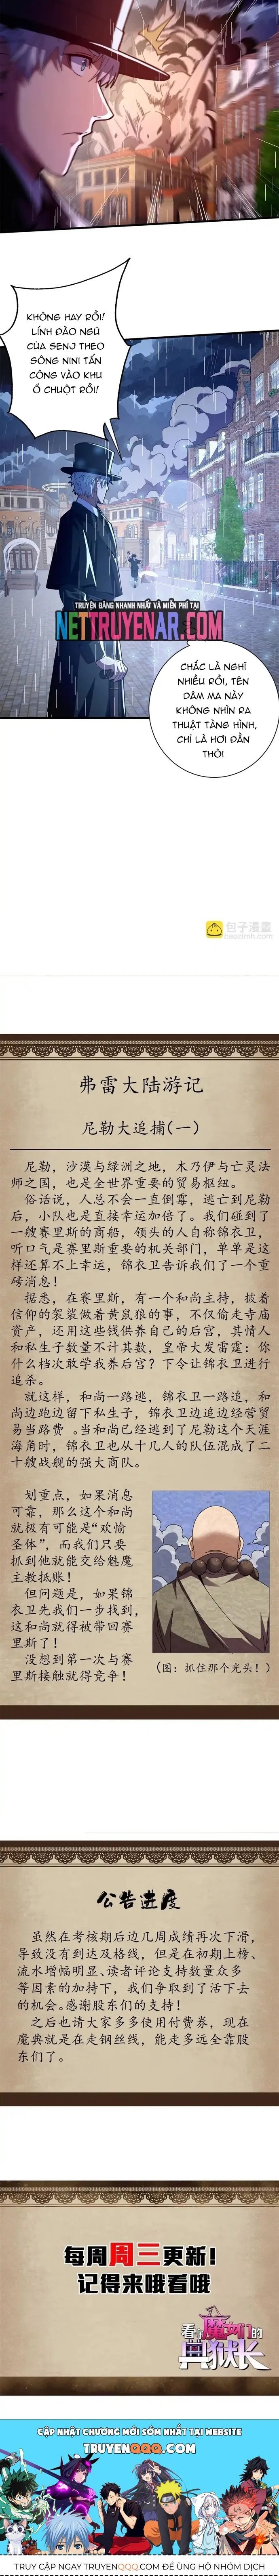 KHÔNG HAY RỒI!
LÍNH ĐÀO NGŨ
CỦA SENJ THEO
SÔNG NINI TẤN
CÔNG VÀO KHU
Ổ CHUỘT RỒI!
TRUYỆN ĐĂNG NHANH NHẤT VÀ MIỄN PHÍ TẠI
NETTRUYENAR.COM
CHẮC LÀ NGHĨ
NHIỀU RỒI, TÊN
DÂM MA NÀY
KHÔNG NHÌN RA
THUẬT TÀNG HÌNH,
CHỈ LÀ HƠI ĐẦN
THÔI
包子漫畫
baozimh.com
弗雷大陆游记
尼勒大追捕(一)
尼勒，沙漠与绿洲之地，木乃伊与亡灵法
师之国，也是全世界重要的贸易枢纽。
俗话说，人总不会一直倒霉，逃亡到尼勒
后，小队也是直接幸运加倍了。我们碰到了
一艘赛里斯的商船，领头的人自称锦衣卫，
听口气是赛里斯重要的机关部门，单单是这
样还算不上幸运，锦衣卫告诉我们了一个重
磅消息！
据悉，在赛里斯，有一个和尚主持，披着
信仰的袈裟做着黄鼠狼的事，不仅偷走寺庙
资产，还用这些钱供养自己的后宫，其情人
和私生子数量不计其数，皇帝大发雷霆：你
什么档次敢学我养后宫？下令让锦衣卫进行
追杀。
就这样，和尚一路逃，锦衣卫一路追，和
尚边跑边留下私生子，锦衣卫边追边经营贸
易当路费 。当和尚已经逃到了尼勒这个天涯
海角时，锦衣卫也从十几人的队伍混成了二
十艘战舰的强大商队。
划重点，如果消息
可靠，那么这个和尚
就极有可能是“欢愉
圣体”，而我们只要
抓到他就能交给魅魔
主教抵账！
但问题是，如果锦
衣卫先我们一步找到，
这和尚就得被带回赛
里斯了！
没想到第一次与赛
里斯接触就得竞争！
（图：抓住那个光头！）
公告进度
虽然在考核期后边几周成绩再次下滑，
导致没有到达及格线，但是在初期上榜、
流水增幅明显、读者评论支持数量众多
等因素的加持下，我们争取到了活下去
的机会。感谢股东们的支持！
之后也请大家多多使用付费券，现在
魔典就是在走钢丝线，能走多远全靠股
东们了。
每周周三更新！
记得来哦看哦
看守魔女们的
典狱长
CẬP NHẬT CHƯƠNG MỚI SỚM NHẤT TẠI WEBSITE
TRUYENQQQ.COM
TRUY CẬP NGAY TRUYENQQQ.COM ĐỂ ỦNG HỘ NHÓM DỊCH